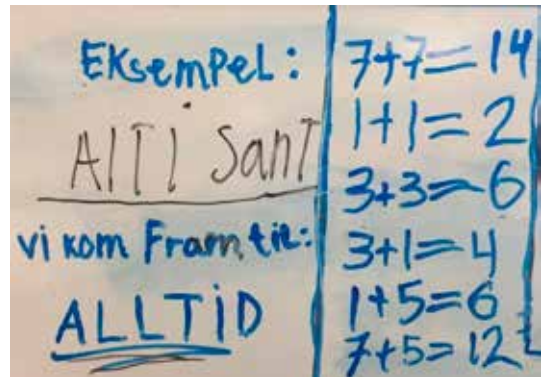 Eksempel:
AlTi SanT
vi kom Fram til:
ALLTiD
7+7=14
1+1=2
3+3=6
3+1=4
1+5=6
7+5=12